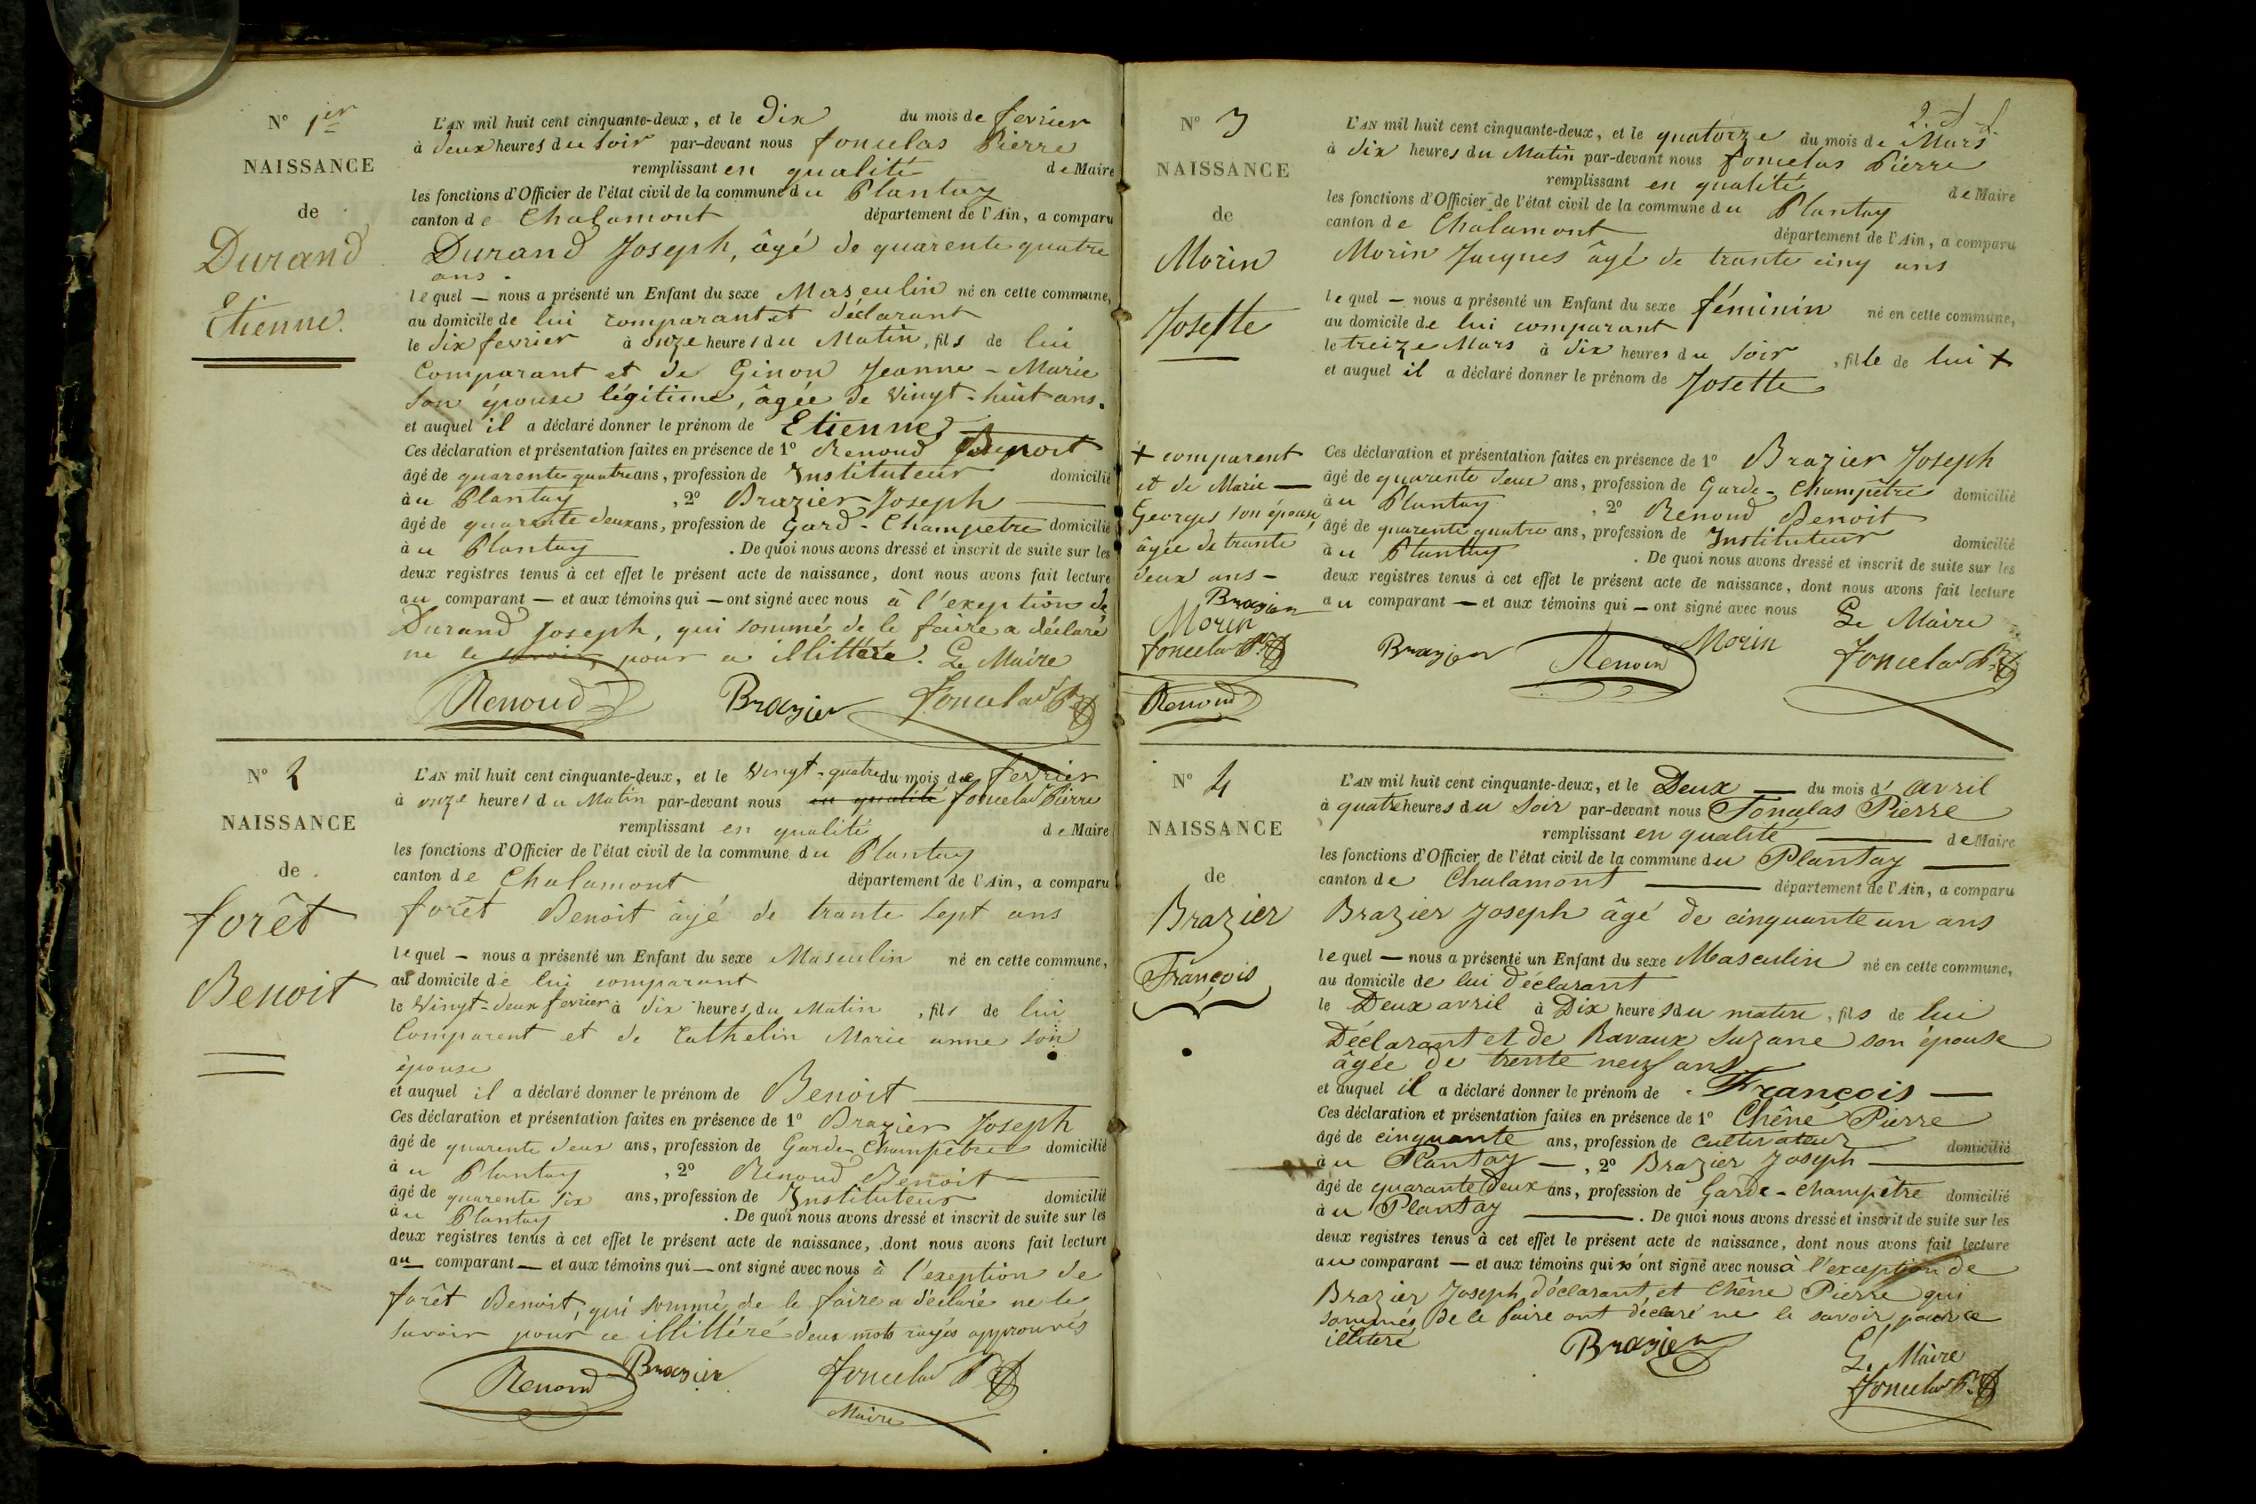 N° 1er
NAISSANCE
de
Durand
Etienne.
L'AN mil huit cent cinquante-deux, et le Dix du mois de fevrier
à deux heures du soir par-devant nous fonculas Pierre
remplissant en qualité de Maire
les fonctions d'Officier de l'état civil de la commune du Plantay
canton de Chalamont département de l'Ain, a comparu
Durand Joseph, âgé de quarente quatre
ans.
lequel — nous a présenté un Enfant du sexe Masculin né en cette commune,
au domicile de lui comparant et déclarant
le dix fevrier à onze heures du Matin, fils de lui
Comparant et de Ginon Jeanne-Marie
Son épouse légitime, âgée de Vingt-huit ans.
et auquel il a déclaré donner le prénom de Etienne
Ces déclaration et présentation faites en présence de 1° Renoud Benoit
âgé de quarente quatre ans, profession de Instituteur domicilié
à u Plantay, 2° Brazier Joseph
âgé de quarante deux ans, profession de Gard-Champetre domicilié
à u Plantay. De quoi nous avons dressé et inscrit de suite sur les
deux registres tenus à cet effet le présent acte de naissance, dont nous avons fait lecture
au comparant — et aux témoins qui — ont signé avec nous à l'exeption de
Durand Joseph, qui sommé de le faire a déclaré
ne le savoir, pour ce illittéré. Le Maire
Renoud Brazier Fonculas P.
N° 2
NAISSANCE
de
forêt
Benoit
L'AN mil huit cent cinquante-deux, et le Vingt-quatre du mois de fevrier
à onze heures du Matin par-devant nous en qualité fonculas Pierre
remplissant en qualité de Maire
les fonctions d'Officier de l'état civil de la commune du Plantay
canton de Chalamont département de l'Ain, a comparu
forêt Benoit âgé de trante sept ans
lequel — nous a présenté un Enfant du sexe Masculin né en cette commune,
au domicile de lui comparant
le Vingt-deux fevrier à dix heures du Matin, fils de lui
Comparent et de Cathelin Marie anne son
épouse
et auquel il a déclaré donner le prénom de Benoit
Ces déclaration et présentation faites en présence de 1° Brazier Joseph
âgé de quarente deux ans, profession de Garde Champêtre domicilié
à u Plantay, 2° Renoud Benoit
âgé de quarente six ans, profession de Instituteur domicilié
à u Plantay. De quoi nous avons dressé et inscrit de suite sur les
deux registres tenus à cet effet le présent acte de naissance, dont nous avons fait lecture
au comparant — et aux témoins qui — ont signé avec nous à l'exeption de
forêt Benoit, qui sommé de le faire a déclaré ne le
savoir pour ce illittéré deux mots rayés approuvés
Renoud Brazier Fonculas P.
Maire
2. d
N° 3
NAISSANCE
de
Morin
Josette
L'AN mil huit cent cinquante-deux, et le quatorze du mois de Mars
à dix heures du Matin par-devant nous fonculas Pierre
remplissant en qualité de Maire
les fonctions d'Officier de l'état civil de la commune du Plantay
canton de Chalamont département de l'Ain, a comparu
Morin Jacques âgé de trante cinq ans
lequel — nous a présenté un Enfant du sexe féminin né en cette commune,
au domicile de lui comparant
le treize Mars à dix heures du soir, fille de lui +
et auquel il a déclaré donner le prénom de Josette
+ comparent
et de Marie —
Georges son épouse,
âgée de trante
deux ans —
Brazier
Morin
Fonculas P.
Renoud
Ces déclaration et présentation faites en présence de 1° Brazier Joseph
âgé de quarente deux ans, profession de Garde-Champêtre domicilié
à u Plantay, 2° Renoud Benoit
âgé de quarente quatre ans, profession de Instituteur domicilié
à u Plantay. De quoi nous avons dressé et inscrit de suite sur les
deux registres tenus à cet effet le présent acte de naissance, dont nous avons fait lecture
au comparant — et aux témoins qui — ont signé avec nous
Le Maire
Brazier Renoud Morin Fonculas P.
N° 4
NAISSANCE
de
Brazier
François
L'AN mil huit cent cinquante-deux, et le Deux — du mois d'avril
à quatre heures du soir par-devant nous Fonculas Pierre
remplissant en qualité — de Maire
les fonctions d'Officier de l'état civil de la commune du Plantay —
canton de Chalamont — département de l'Ain, a comparu
Brazier Joseph âgé de cinquante un ans
lequel — nous a présenté un Enfant du sexe Masculin né en cette commune,
au domicile de lui déclarant
le Deux avril à Dix heures du matin, fils de lui
Déclarant et de Ravaux Suzane son épouse
âgée de trente neuf ans
et auquel il a déclaré donner le prénom de François —
Ces déclaration et présentation faites en présence de 1° Chêne Pierre
âgé de cinquante ans, profession de cultivateur domicilié
à u Plantay —, 2° Brazier Joseph —
âgé de quarante Deux ans, profession de Garde-champêtre domicilié
à u Plantay —. De quoi nous avons dressé et inscrit de suite sur les
deux registres tenus à cet effet le présent acte de naissance, dont nous avons fait lecture
au comparant — et aux témoins qui ont signé avec nous à l'exception de
Brazier Joseph, déclarant, et Chêne Pierre qui
sommés de le faire ont déclaré ne le savoir, pour ce
illiteré
Brazier
Le Maire
Fonculas P.